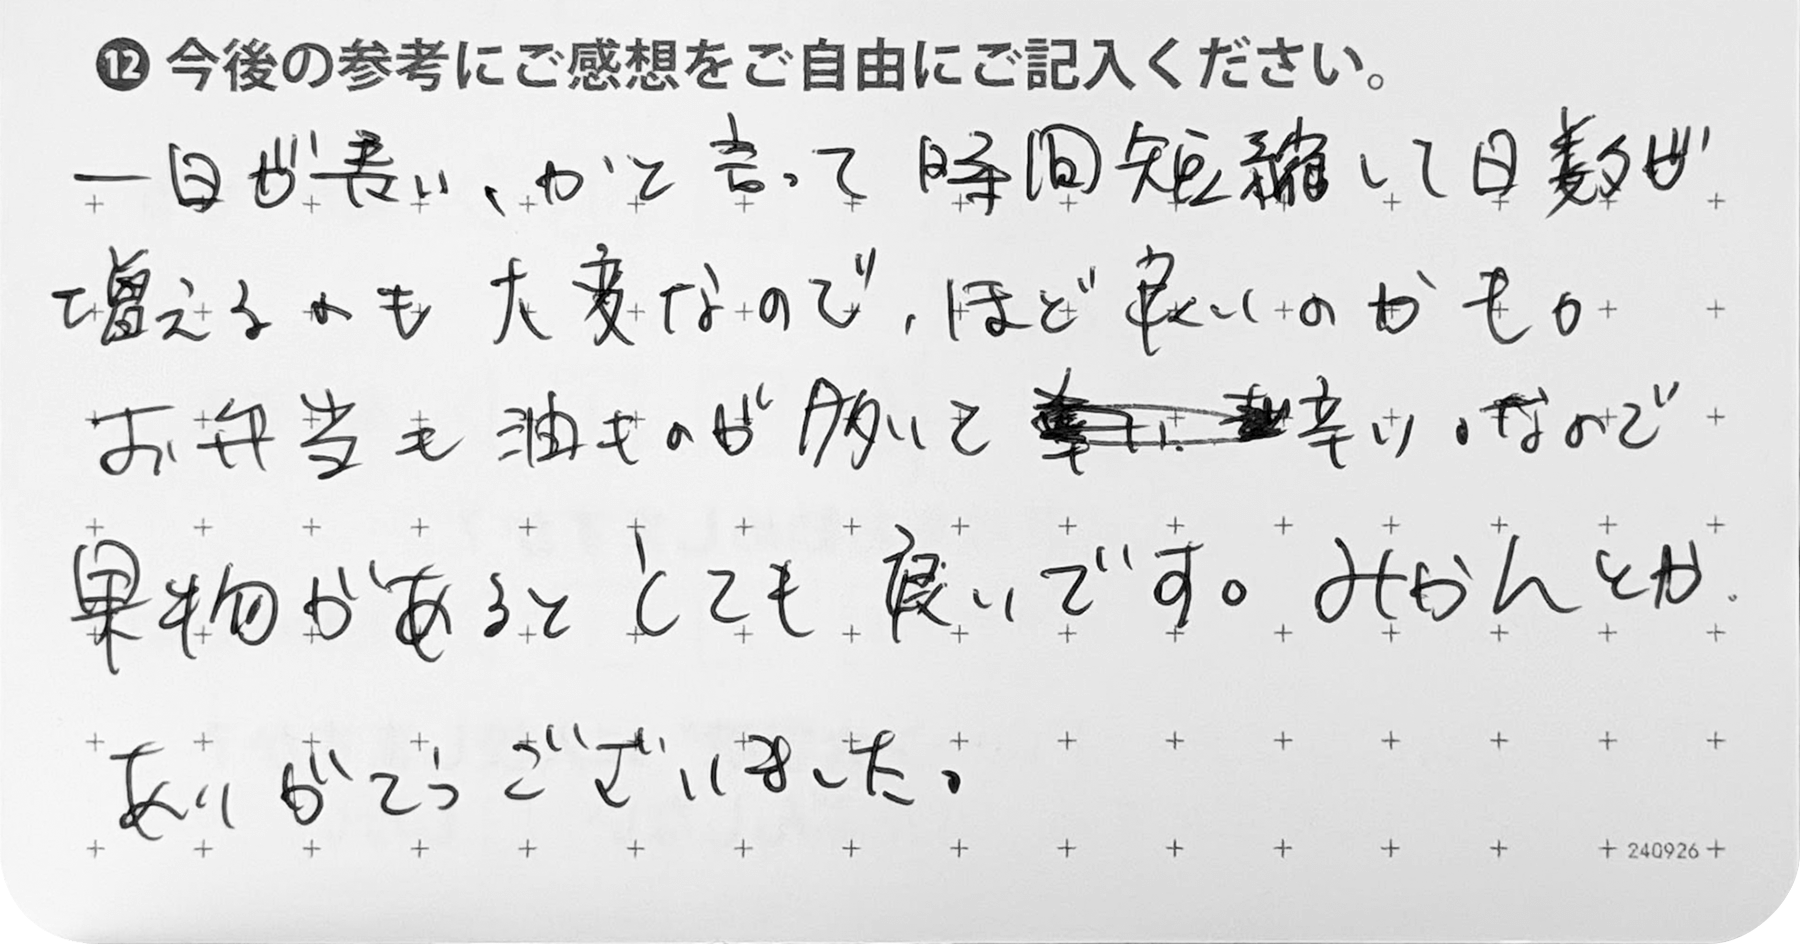 ⑫今後の参考にご感想をご自由にご記入ください。
一日が長い、かと言って時間短縮して日数が
増えるのも大変なので、ほど良いのかも。
お弁当も油ものが多いと辛い。なので
果物があるととても良いです。みかんとか.
ありがとうございました。
240926